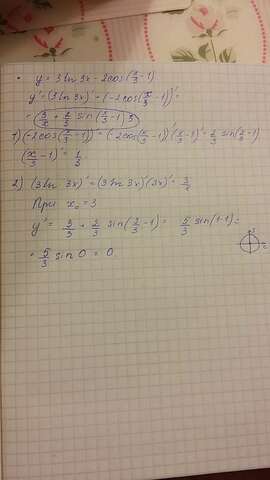 • y = 3 ln 3x - 2cos(x/3 - 1)
y' = (3 ln 3x)' + (-2cos(x/3 - 1))' =
= (3/x + 2/3 sin(x/3 - 1))
1) (-2cos(x/3 - 1))' = (-2cos(x/3 - 1))'(x/3 - 1)' = 2/3 sin(x/3 - 1)
(x/3 - 1)' = 1/3
2) (3 ln 3x)' = (3 ln 3x)'(3x)' = 3/x
При x₀ = 3
y' = 3/3 + 2/3 sin(3/3 - 1) = 5/3 sin(1-1) =
= 5/3 sin 0 = 0